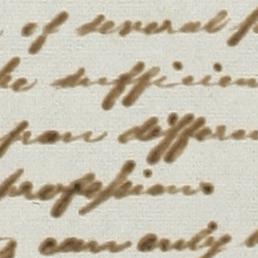 of several
be sufficien
from differen
profession.
can only